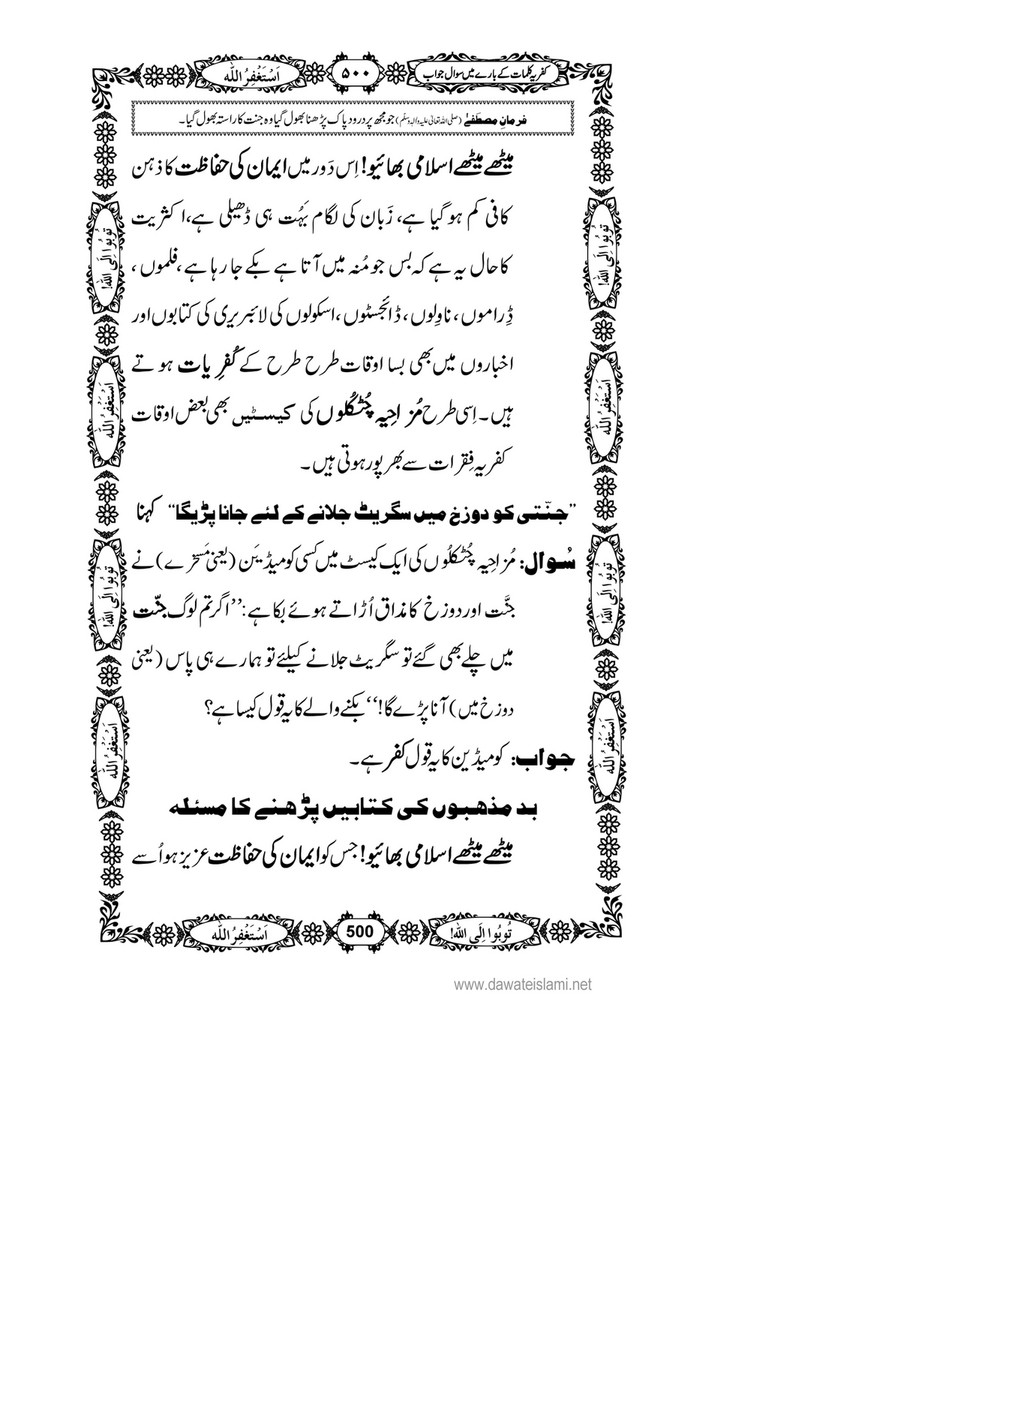 کفریہ کلمات کے بارے میں سوال جواب
۵۰۰
اَسْتَغْفِرُ اللّٰه
فرمانِ مصطفےٰ (صلی اللہ تعالیٰ علیہ والہٖ وسلّم) جو مجھ پر درود پاک پڑھنا بھول گیا وہ جنت کا راستہ بھول گیا۔
میٹھے میٹھے اسلامی بھائیو! اِس دَور میں ایمان کی حفاظت کا ذہن
کافی کم ہو گیا ہے، زَبان کی لگام بَہُت ہی ڈھیلی ہے، اکثریت
کا حال یہ ہے کہ بس جو مُنہ میں آتا ہے بکے جا رہا ہے، فلموں ،
ڈِراموں ، ناوِلوں ، ڈائجسٹوں ، اسکولوں کی لائبریری کی کتابوں اور
اخباروں میں بھی بسا اوقات طرح طرح کے کُفرِیات ہوتے
ہیں۔ اِسی طرح مُزاحِیہ چُٹکُلوں کی کیسٹیں بھی بعض اوقات
کفریہ فِقرات سے بھرپور ہوتی ہیں۔
"جنّتی کو دوزخ میں سگریٹ جلانے کے لئے جانا پڑیگا" کہنا
سُوال: مُزاحِیہ چُٹکُلُوں کی ایک کیسٹ میں کسی کومیڈیَن (یعنی مَسخرے) نے
جنَّت اور دوزخ کا مذاق اُڑاتے ہوئے بکا ہے: ’’اگر تم لوگ جنّت
میں چلے بھی گئے تو سگریٹ جلانے کیلئے تو ہمارے ہی پاس (یعنی
دوزخ میں) آنا پڑے گا!‘‘ بکنے والے کا یہ قول کیسا ہے؟
جواب: کومیڈین کا یہ قول کفر ہے۔
بد مذھبوں کی کتابیں پڑھنے کا مسئلہ
میٹھے میٹھے اسلامی بھائیو! جس کو ایمان کی حفاظت عزیز ہو اُسے
تُوبُوا اِلَی اللّٰه!
اَسْتَغْفِرُ اللّٰه
تُوبُوا اِلَی اللّٰه!
اَسْتَغْفِرُ اللّٰه
تُوبُوا اِلَی اللّٰه!
اَسْتَغْفِرُ اللّٰه
تُوبُوا اِلَی اللّٰه!
اَسْتَغْفِرُ اللّٰه
تُوبُوا اِلَی اللّٰه!
500
اَسْتَغْفِرُ اللّٰه
www.dawateislami.net